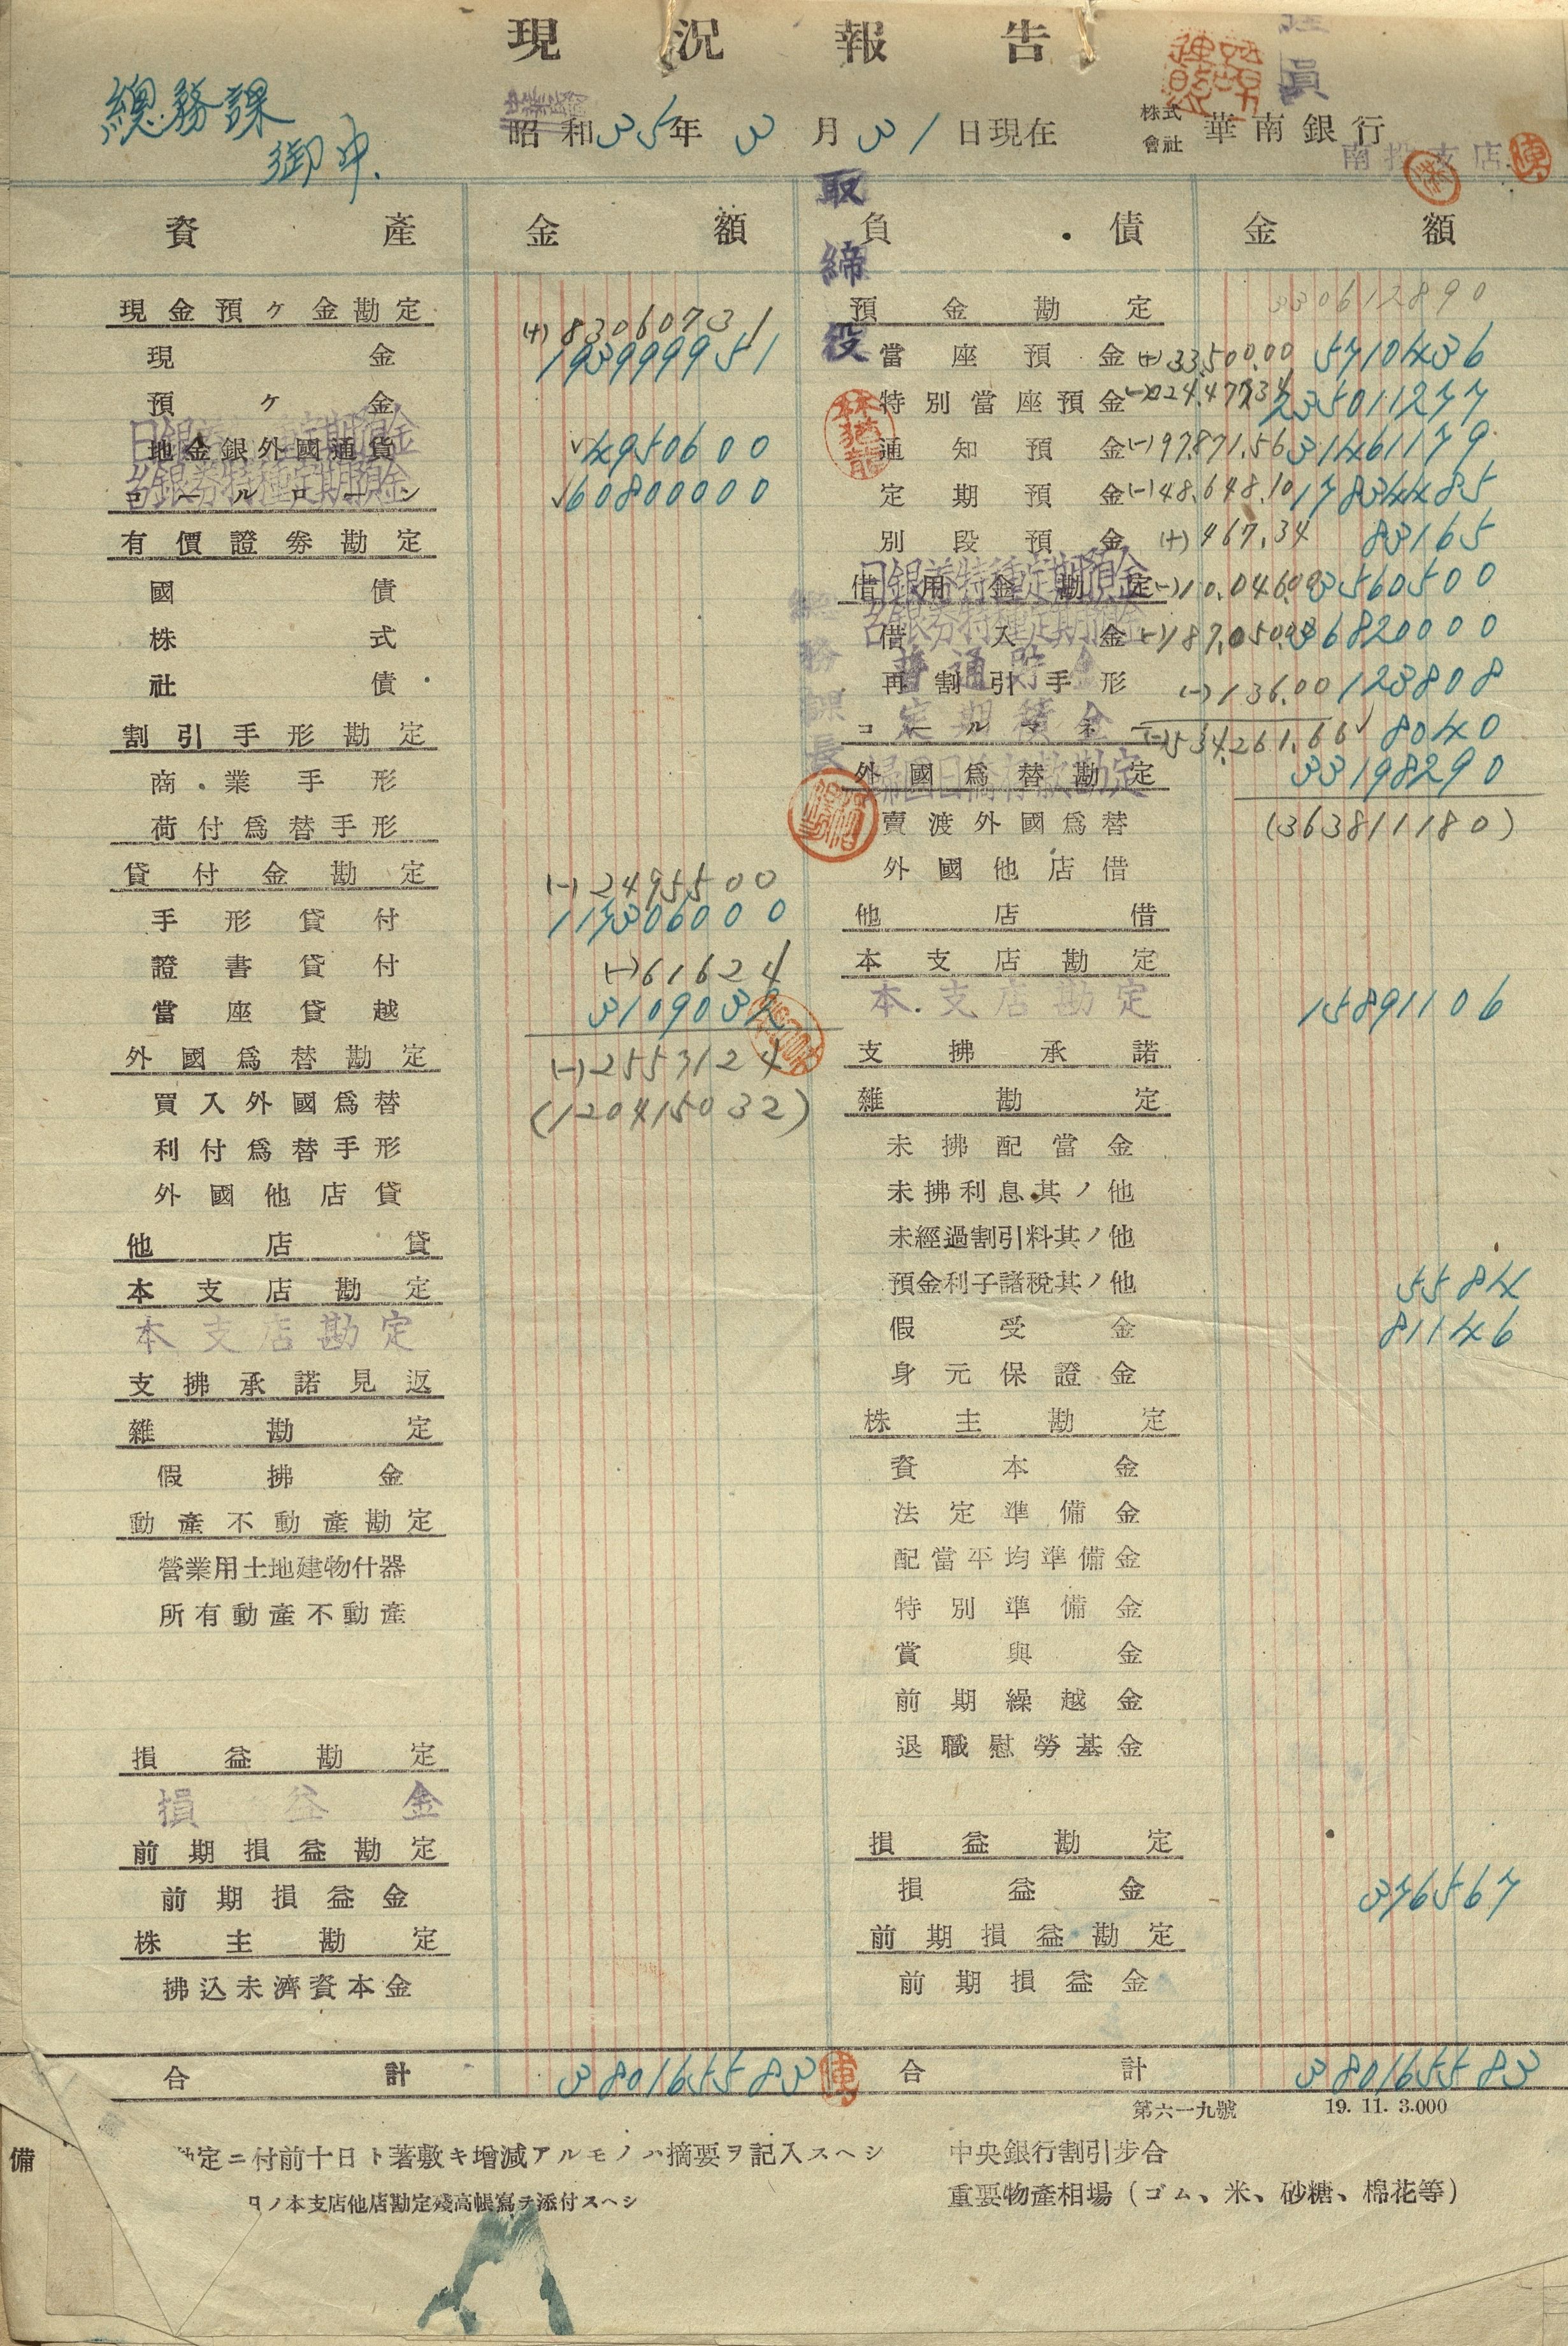 現況報告
總務課
御中.
昭和35年3月31日現在
株式會社 華南銀行
南投支店
取締役
總務課長
資產 金額 負債 金額
現金預ケ金勘定 (+) 83060731
現金 193999951
預ケ金
地金銀外國通貨 √4950600
コールローン √60800000
有價證券勘定
國債
株式
社債
割引手形勘定
商業手形
荷付爲替手形
貸付金勘定 (-) 2495500
手形貸付 117306000
證書貸付 (-) 61624
當座貸越 3109032
外國爲替勘定 (-) 2553124
買入外國爲替 (120415032)
利付爲替手形
外國他店貸
他店貸
本支店勘定
本支店勘定
支拂承諾見返
雜勘定
假拂金
動產不動產勘定
營業用土地建物什器
所有動產不動產
損益勘定
損益金
前期損益勘定
前期損益金
株主勘定
拂込未濟資本金
合計 380165583
預金勘定 330612890
當座預金 (+) 33,500.00 5710436
特別當座預金 235011277
通知預金 (-) 97,871.56 31461179
定期預金 (-) 48,648.10 17834485
別段預金 (+) 467.34 83165
借用金勘定 3560500
日銀券特種定期預金
台銀券特種定期預金
借入金 6820000
普通貯金
再割引手形 (-) 136.00 123808
定期積金
コールマネー (-) 534,261.66 √ 8040
外國爲替勘定 33198290
賣渡外國爲替 (363811180)
外國他店借
他店借
本支店勘定
本支店勘定 15891106
支拂承諾
雜勘定
未拂配當金
未拂利息其ノ他
未經過割引料其ノ他
預金利子諸稅其ノ他 5584
假受金 81146
身元保證金
株主勘定
資本金
法定準備金
配當平均準備金
特別準備金
賞與金
前期繰越金
退職慰勞基金
損益勘定
損益金 376567
前期損益勘定
前期損益金
合計 380165583
第六一九號 19. 11. 3.000
備
勘定ニ付前十日ト著敷キ增減アルモノハ摘要ヲ記入スヘシ
ノ本支店他店勘定殘高帳寫ヲ添付スヘシ
中央銀行割引步合
重要物產相場（ゴム、米、砂糖、棉花等）